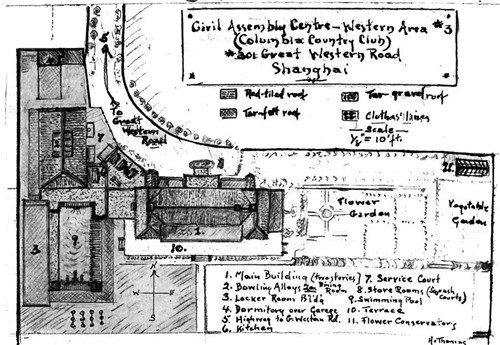 Civil Assembly Centre - Western Area #3
(Columbia Country Club)
#301 Great Western Road
Shanghai
Red-tiled roof
Tar-gravel roof
Tar-felt roof
Clothes' lines
Scale
1/8" = 10 ft.
5
To
Great
Western
Road
7
8
11.
Flower
Garden
Vegetable
Garden
3
9
1.
10.
N
W
E
S
6
1. Main Building (two stories)
2. Bowling Alleys 2a Dining Room
3. Locker Room Bldg
4. Dormitory over Garage
5. Highway to G. Western Rd.
6. Kitchen
7. Service Court
8. Store Rooms (Squash Courts)
9. Swimming Pool
10. Terrace
11. Flower Conservatory
H. Thomas